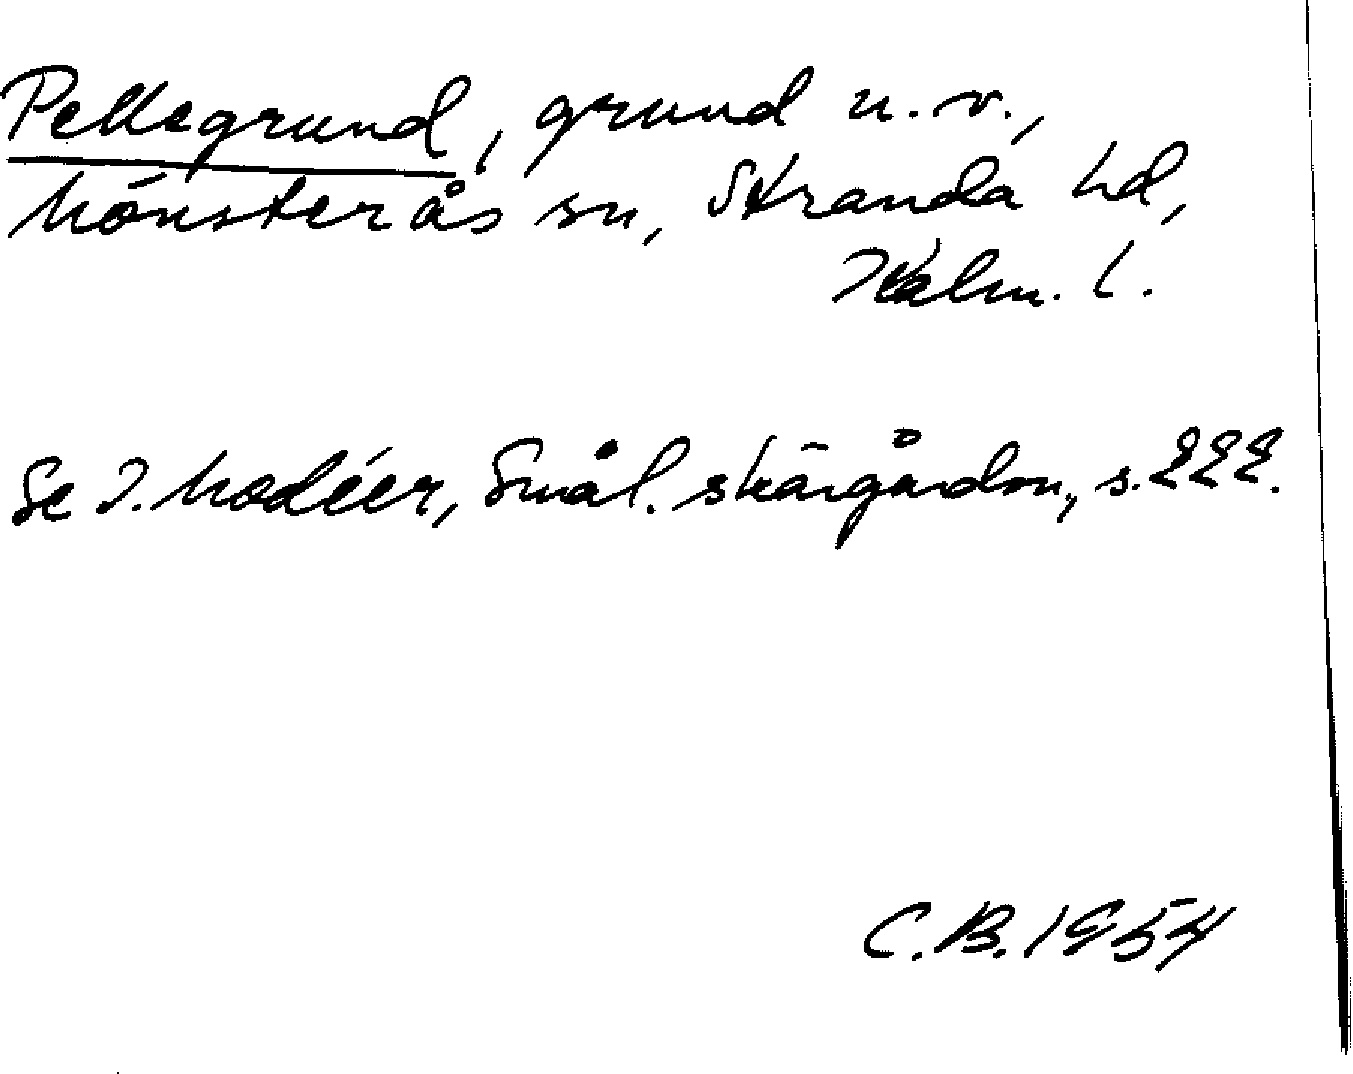 Pellegrund, grund u.v.,
Mönsterås sn, Stranda hd,
Kalm. l.
Se I. Modéer, Smål. skärgården, s. 222.
C.B. 1954